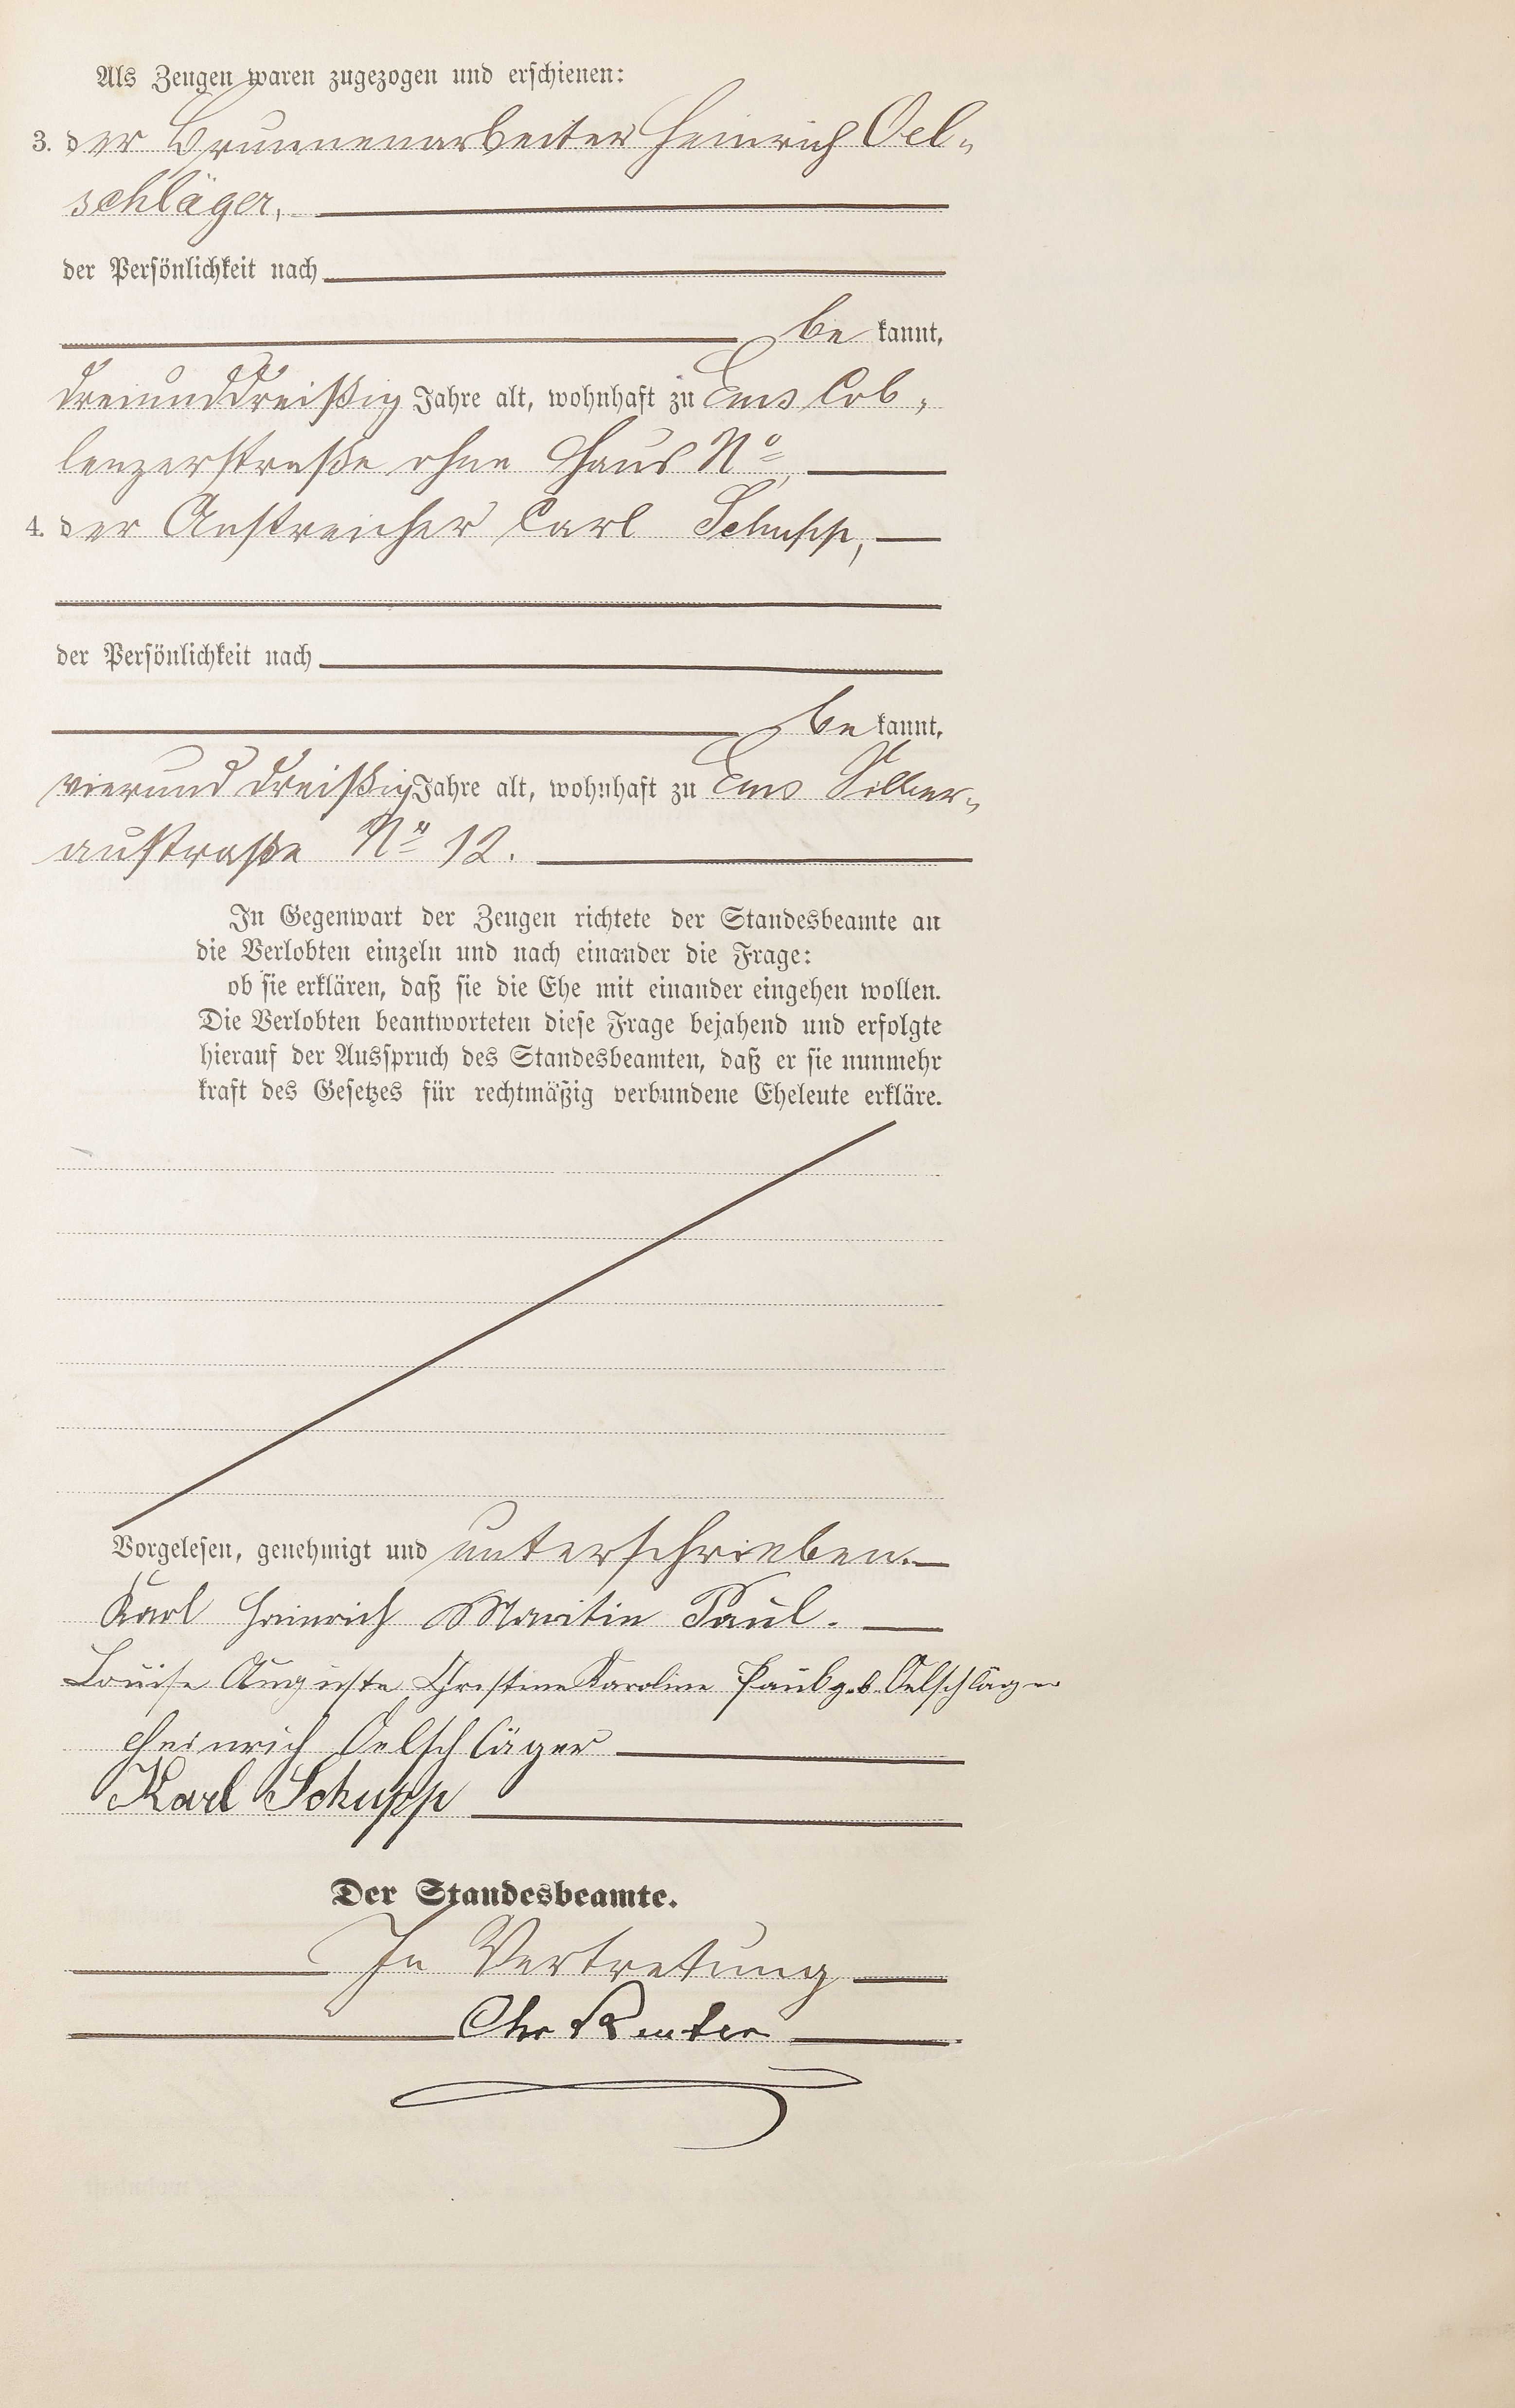 Als Zeugen waren zugezogen und erschienen:
3. der Brunnenarbeiter Heinrich Oel-
schläger,
der Persönlichkeit nach
be kannt,
dreiunddreißig Jahre alt, wohnhaft zu Ems Cob-
lenzerstraße ohne Haus No,
4. der Anstreicher Carl Schupp,
der Persönlichkeit nach
be kannt,
vierunddreißig Jahre alt, wohnhaft zu Ems Silber-
austraße No 12.
In Gegenwart der Zeugen richtete der Standesbeamte an
die Verlobten einzeln und nach einander die Frage:
ob sie erklären, daß sie die Ehe mit einander eingehen wollen.
Die Verlobten beantworteten diese Frage bejahend und erfolgte
hierauf der Ausspruch des Standesbeamten, daß er sie nunmehr
kraft des Gesetzes für rechtmäßig verbundene Eheleute erkläre.
Vorgelesen, genehmigt und unterschrieben.
Karl Heinrich Martin Paul.
Louise Auguste Christine Karoline Paul geb. Oelschläger
Heinrich Oelschläger
Karl Schupp
Der Standesbeamte.
In Vertretung
Chr